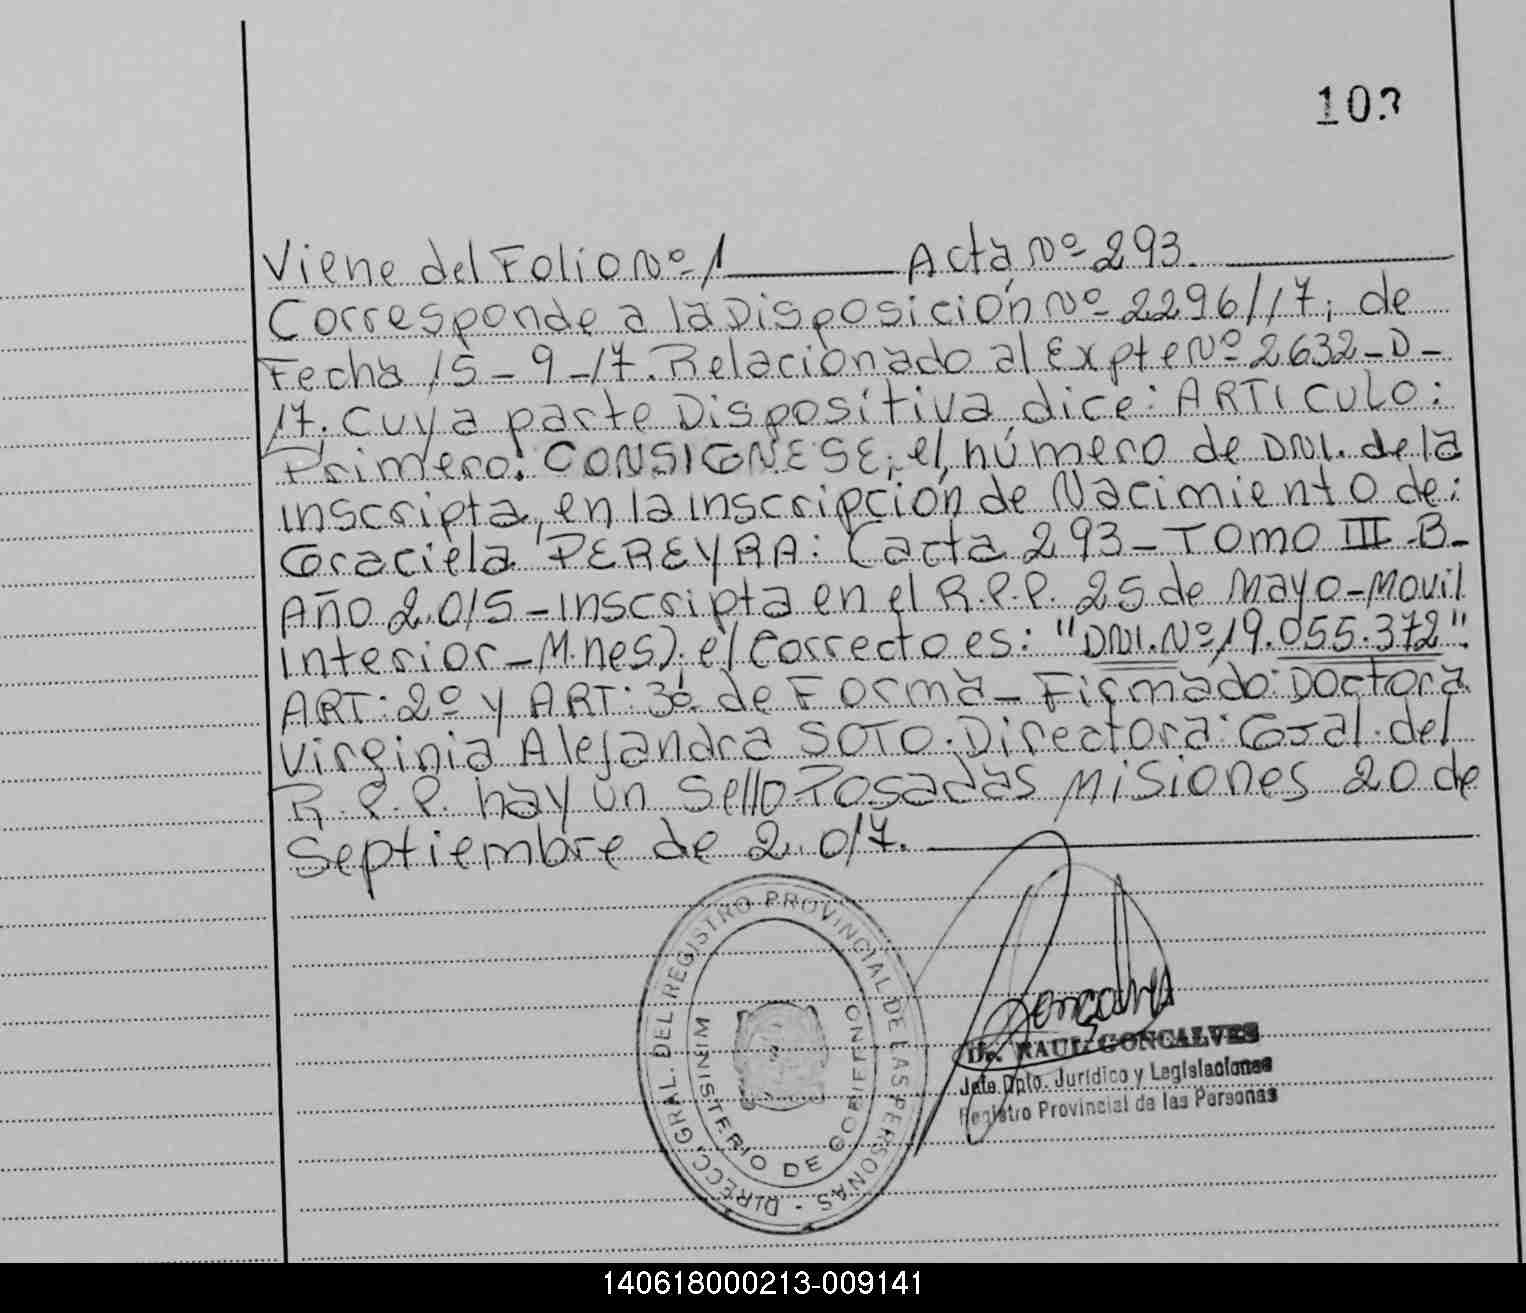 103
Viene del Folio Nº 1 Acta Nº 293.
Corresponde a la Disposición Nº 2296/17, de
Fecha 15-9-17. Relacionado al Expte Nº 2632-D-
17. Cuya parte Dispositiva dice: ARTICULO:
Primero: CONSIGNESE; el número de DNI. de la
inscripta, en la inscripción de Nacimiento de:
Graciela PEREYRA: (acta 293-TOMO III-B-
Año 2.015-Inscripta en el R.P.P. 25 de Mayo-Movil
Interior-M.nes). el Correcto es: "DNI. Nº 19.055.372".
ART: 2º y ART: 3º de Forma-Firmado: Doctora
Virginia Alejandra SOTO. Directora: Gral. del
R.P.P. hay un Sello Posadas Misiones 20 de
Septiembre de 2.017.
DIRECC. GRAL. DEL REGISTRO PROVINCIAL DE LAS PERSONAS -
MINISTERIO DE GOBIERNO
Goncalves
Dr. RAUL GONCALVES
Jefe Dpto. Jurídico y Legislaciones
Registro Provincial de las Personas
140618000213-009141